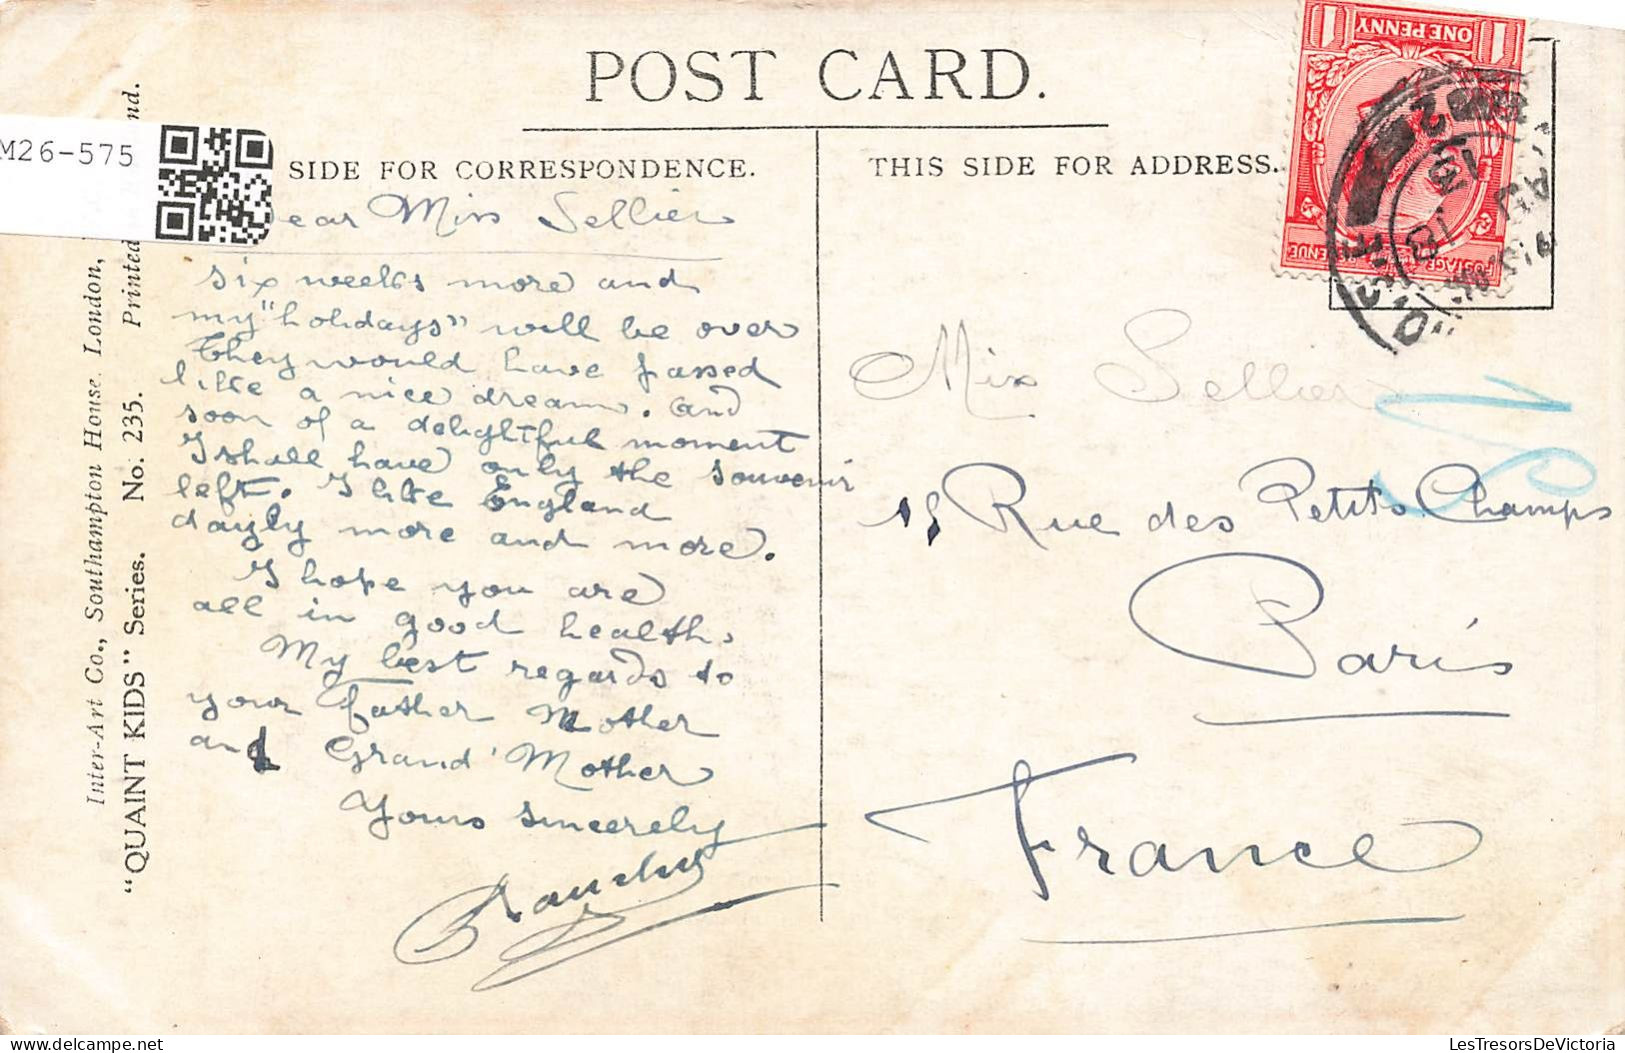 POST CARD.
M26-575
SIDE FOR CORRESPONDENCE.
THIS SIDE FOR ADDRESS.
ONE PENNY
POSTAGE REVENUE
ear Miss Sellier
six weeks more and
my "holidays" will be over
They would have passed
like a nice dream. and
soon of a delightful moment
I shall have only the souvenir
left. I like England
dayly more and more.
I hope you are
all in good health.
My best regards to
your father Mother
and Grand'Mother
Yours sincerely
Miss Sellier
18 Rue des Petits Champs
Paris
France
Inter-Art Co., Southampton House, London,
Printed
nd.
"QUAINT KIDS" Series. No. 235.
LesTresorsDeVictoria
delcampe.net